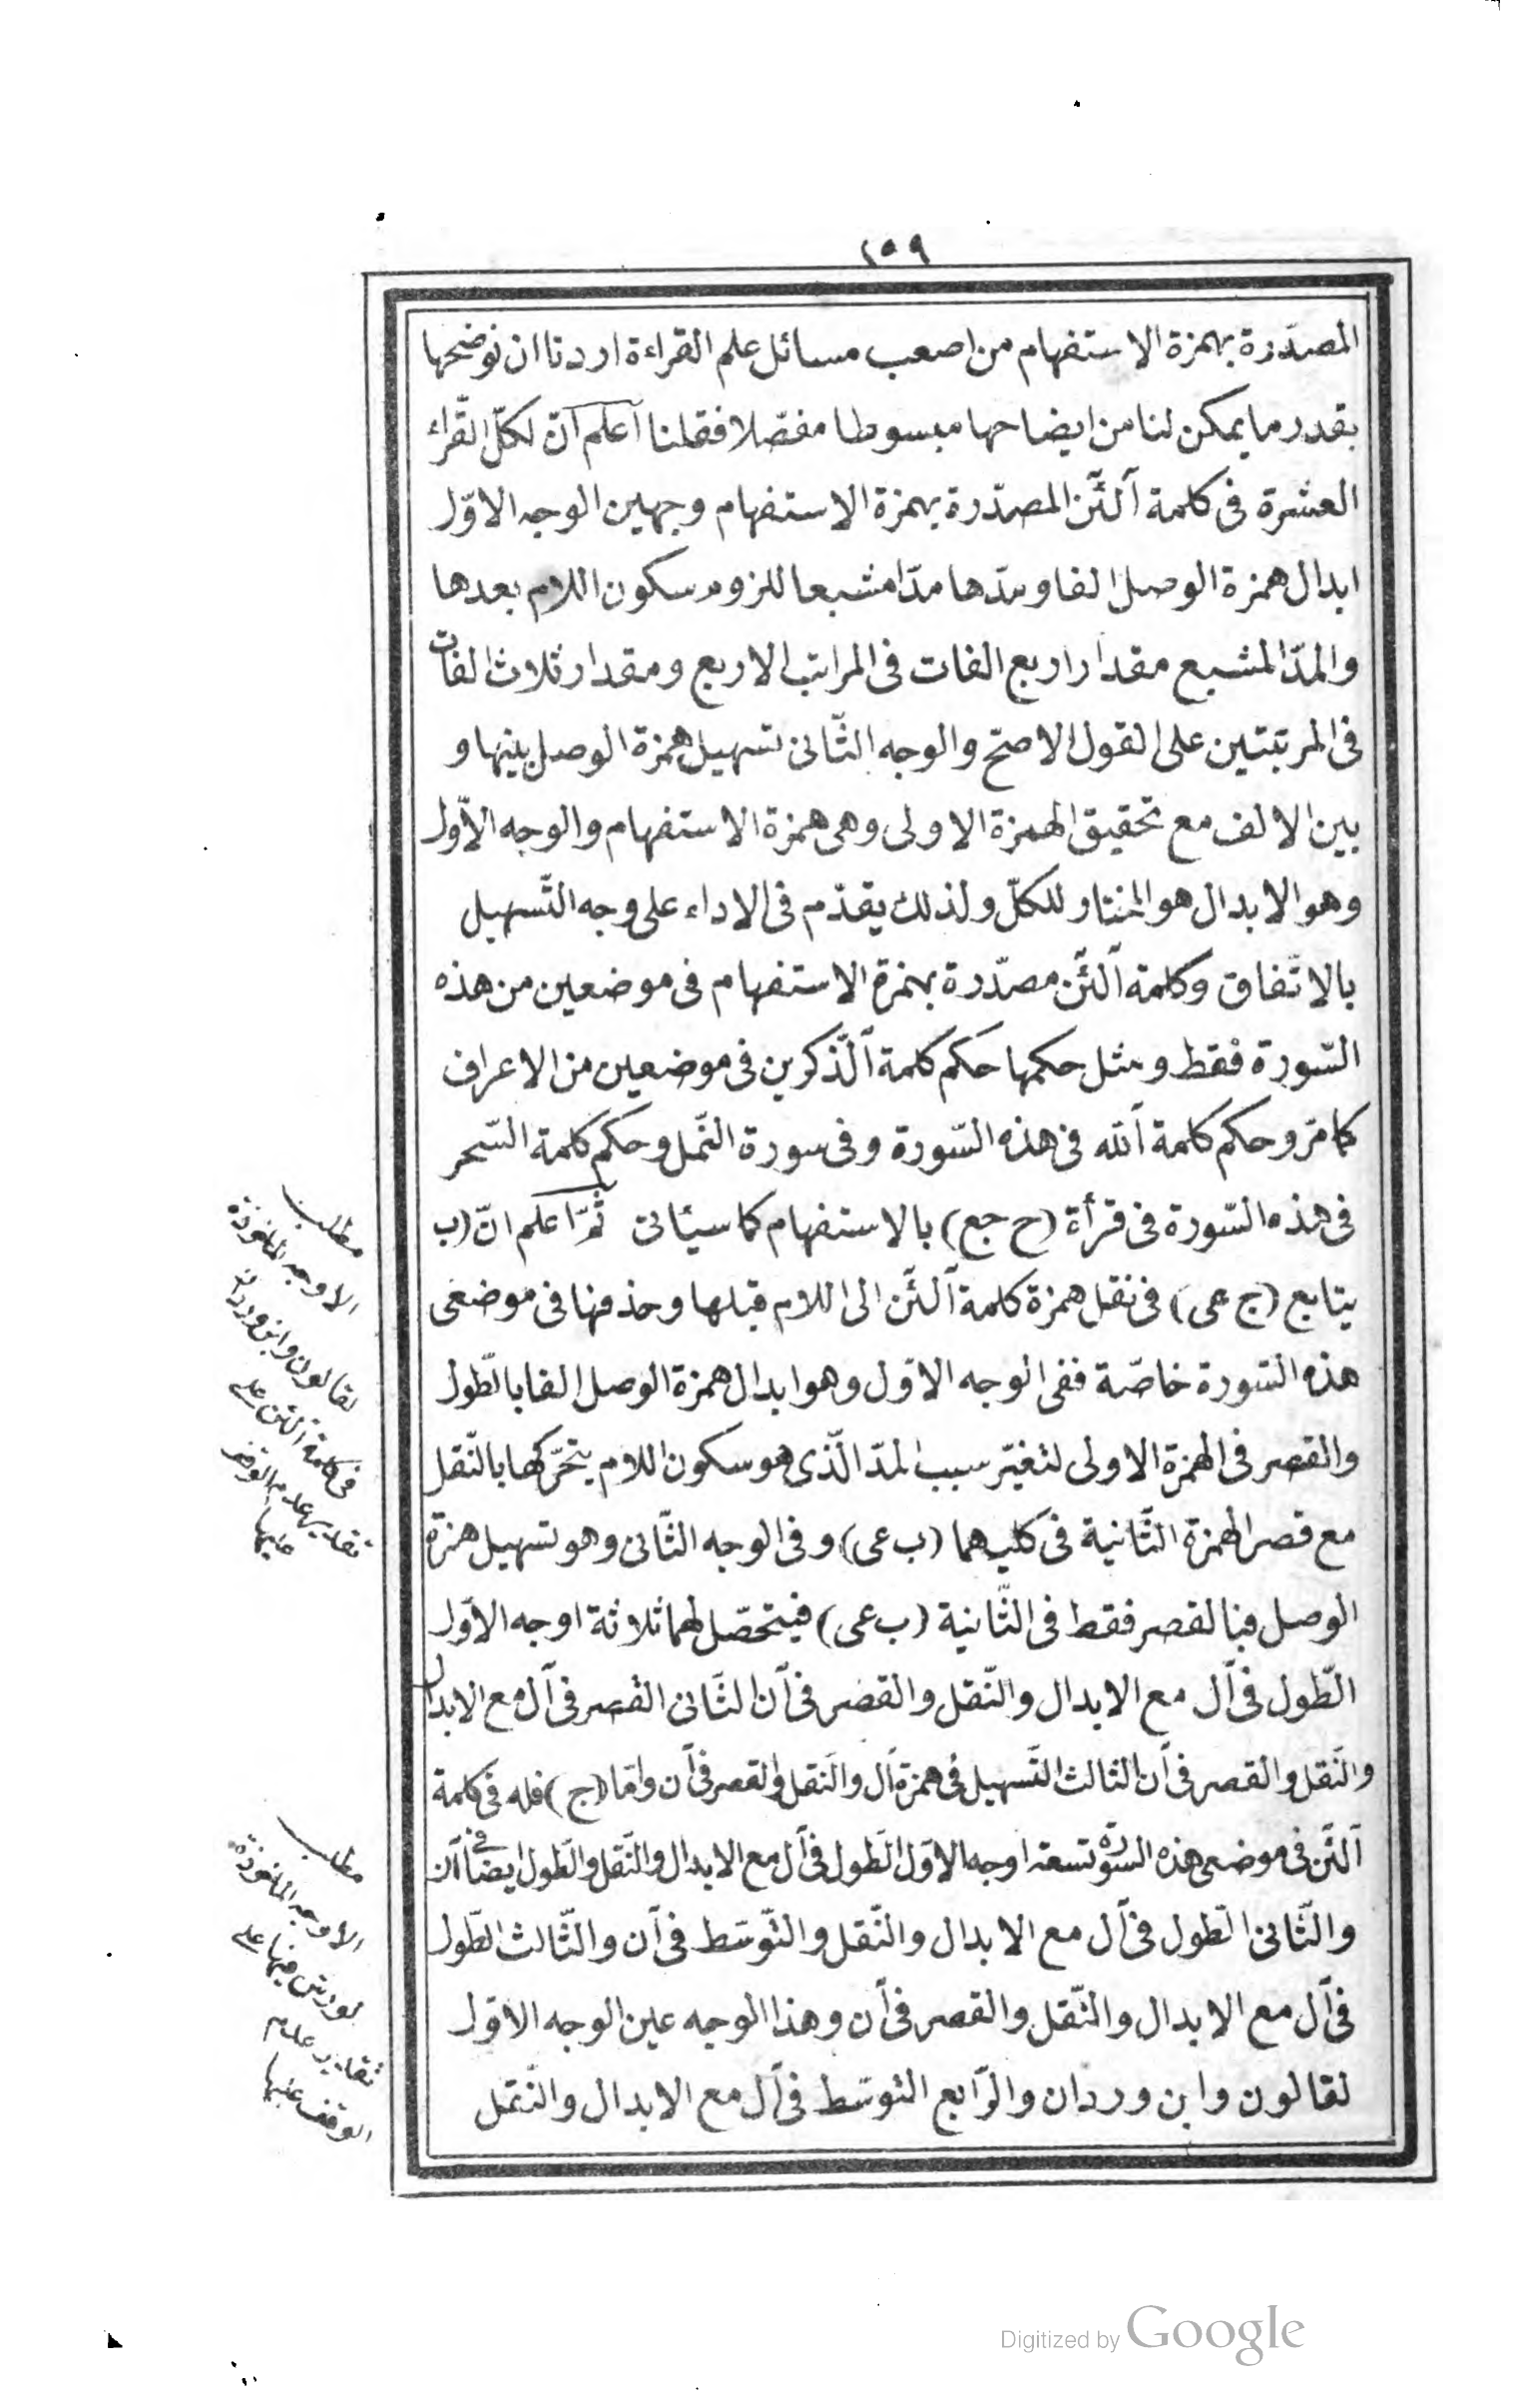 ١٥٩
المصدّرة بهمزة الاستفهام من اصعب مسائل علم القراءة اردنا ان نوضحها
بقدر ما يمكن لنا من ايضاحها مبسوطا مفصّلا فقلنا آعلم آنّ لكلّ القّراء
العشرة فى كلمة آلئٓن المصدّرة بهمزة الاستفهام وجهين الوجه الاوّل
ابدال همزة الوصل الفا ومدّها مدّا مشبعا للزوم سكون اللام بعدها
والمدّ المشبع مقدار اربع الفات فى المراتب الاربع ومقدار ثلاث الفات
فى المرتبتين على القول الاصحّ والوجه الثّانى تسهيل همزة الوصل بينها و
بين الالف مع تحقيق الهمزة الاولى وهى همزة الاستفهام والوجه الاّول
وهو الابدال هو المختار للكلّ ولذلك يقدّم فى الاداء على وجه التّسهيل
بالاتّفاق وكلمة آلئٓن مصدّرة بهمزة الاستفهام فى موضعين من هذه
السّورة فقط ومثل حكمها حكم كلمة آلّذكرين فى موضعين من الاعراف
كما مرّ وحكم كلمة آلله فى هذه السّورة وفى سورة النّمل وحكم كلمة السّحر
فى هذه السّورة فى قرأة (ح جع) بالاستفهام كما سيئاتى ثمّ اعلم انّ (ب
يتابع (ج عى) فى نقل همزة كلمة آلئٓن الى اللام قبلها وحذفها فى موضعى
هذه السّورة خاصّة ففى الوجه الاوّل وهو ابدال همزة الوصل الفا بالطّول
والقصر فى الهمزة الاولى لتغيّر سبب المدّ الّذى هو سكون اللام بتحّركها بالنّقل
مع قصر الهمزة الثّانية فى كليهما (ب عى) وفى الوجه الثّانى وهو تسهيل همزة
الوصل فبالقصر فقط فى الثّانية (ب عى) فيتحصّل لهما ثلاثة اوجه الاوّل
الطّول فى آل مع الابدال والنّقل والقصر فى آن الثّانى القصر فى آل مع الابدال
والنّقل والقصر فى آن الثالث التّسهيل فى همزة آل والنّقل والقصر فى آن وامّا (ج) فله فى كلمة
آلئٓن فى موضعى هذه السّورة تسعة اوجه الاوّل الطّول فى آل مع الابدال والنّقل والطّول ايضا فى آن
والثّانى الطّول فى آل مع الابدال والنّقل والتّوسّط فى آن والثّالث الطّول
فى آل مع الابدال والنّقل والقصر فى آن وهذا الوجه عين الوجه الاوّل
لقالون وابن وردان والرّابع التّوسّط فى آل مع الابدال والنّقل
مطلب
الاوجه المأخوذة
لقالون وابن وردان
فى كلمة آلئن على
تقدير عدم الوقف
عليها
مطلب
الأوجه المأخوذة
لورش فيها على
تقدير عدم
الوقف عليها
Digitized by Google